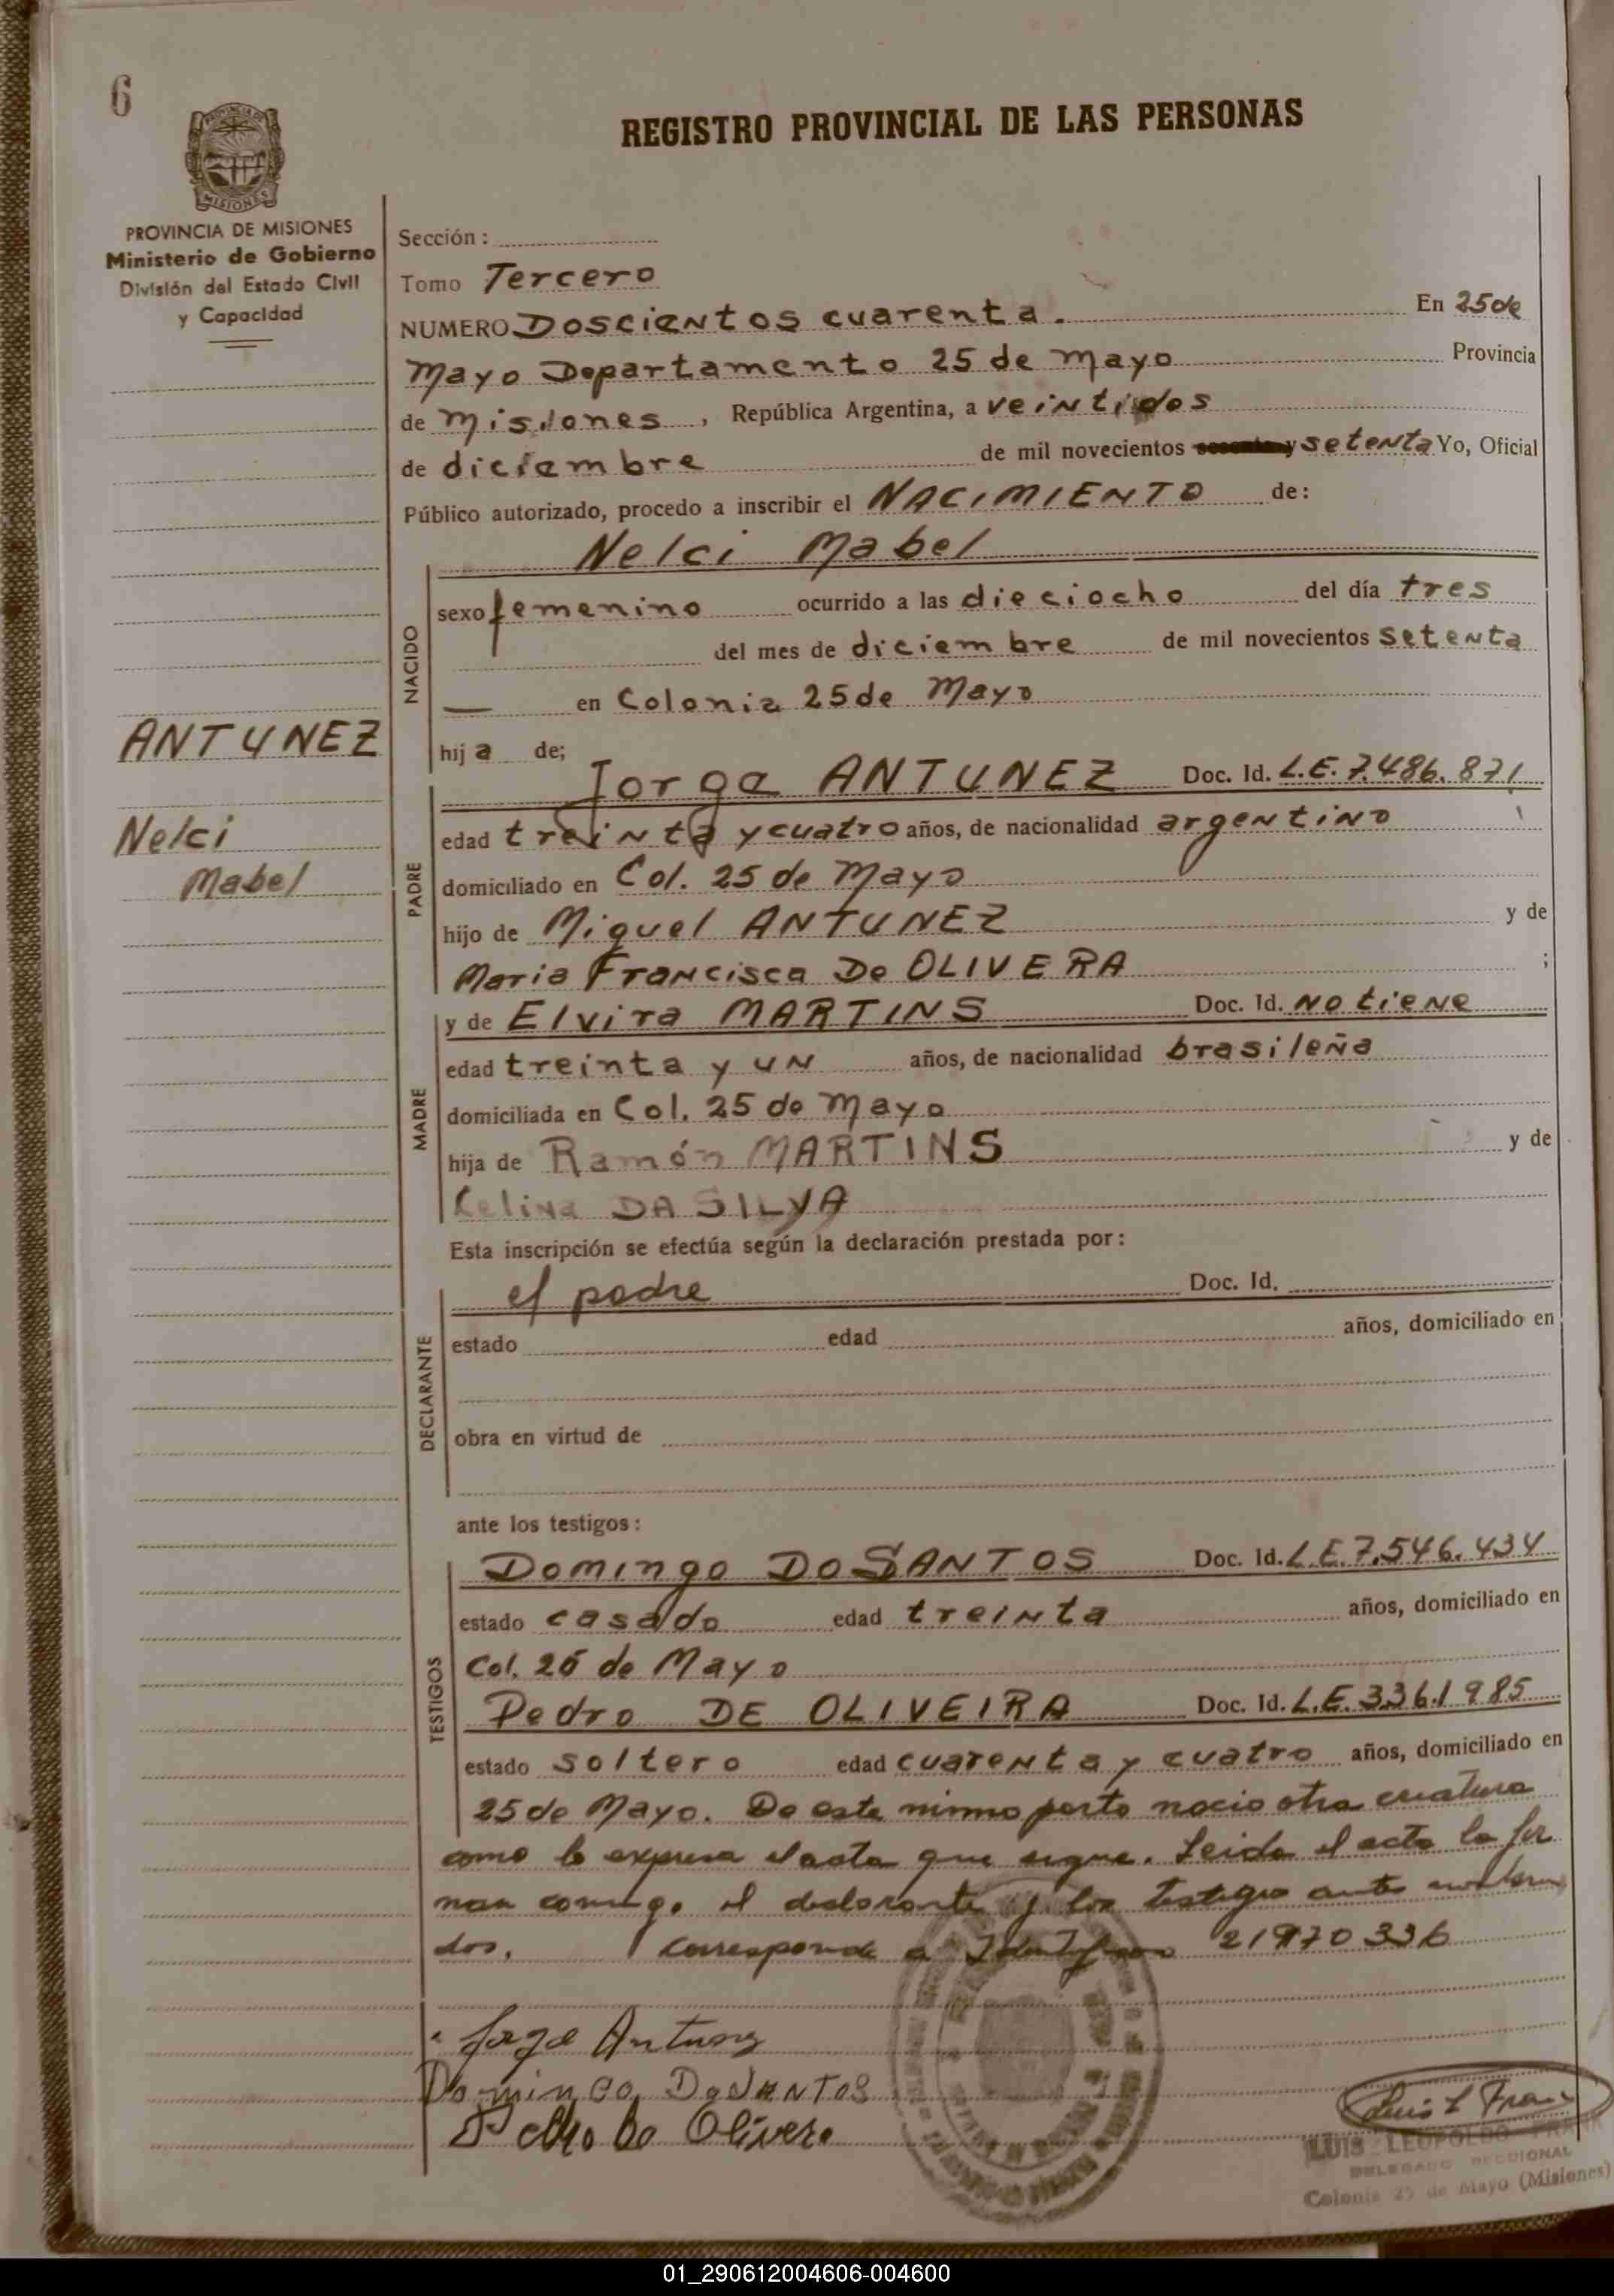 6
REGISTRO PROVINCIAL DE LAS PERSONAS
MISIONES
PROVINCIA DE MISIONES
Ministerio de Gobierno
División del Estado Civil
y Capacidad
Sección :
Tomo Tercero
NUMERO Doscientos cuarenta. En 25 de
Mayo Departamento 25 de Mayo Provincia
de Misiones, República Argentina, a veintidos
de diciembre de mil novecientos setenta Yo, Oficial
Público autorizado, procedo a inscribir el NACIMIENTO de:
Nelci Mabel
NACIDO
sexo femenino ocurrido a las dieciocho del día tres
del mes de diciembre de mil novecientos setenta
— en Colonia 25 de Mayo
ANTUNEZ
Nelci
Mabel
hija de;
Jorge ANTUNEZ Doc. Id. L.E. 7.486.871
PADRE
edad treinta y cuatro años, de nacionalidad argentino
domiciliado en Col. 25 de Mayo
hijo de Miguel ANTUNEZ y de
Maria Francisca De OLIVERA ;
y de Elvira MARTINS Doc. Id. No tiene
MADRE
edad treinta y un años, de nacionalidad brasileña
domiciliada en Col. 25 de Mayo
hija de Ramón MARTINS y de
Celina DA SILVA
Esta inscripción se efectúa según la declaración prestada por :
el padre Doc. Id.
DECLARANTE
estado edad años, domiciliado en
obra en virtud de
ante los testigos :
Domingo DOSANTOS Doc. Id. L.E. 7.546.434
TESTIGOS
estado casado edad treinta años, domiciliado en
Col. 25 de Mayo
Pedro DE OLIVEIRA Doc. Id. L.E. 3361985
estado soltero edad cuarenta y cuatro años, domiciliado en
25 de Mayo. De este mismo parto nacio otra criatura
como lo expresa el acta que sigue. Leida el acta la fir
man conmigo el declarante y los testigos antes nombra
dos. Corresponde a 21970336
Jorge Antunez
Domingo DoSANTOS
Pedro De Olivera
Luis L Frank
LUIS LEOPOLDO FRANK
DELEGADO SECCIONAL
Colonia 25 de Mayo (Misiones)
01_290612004606-004600